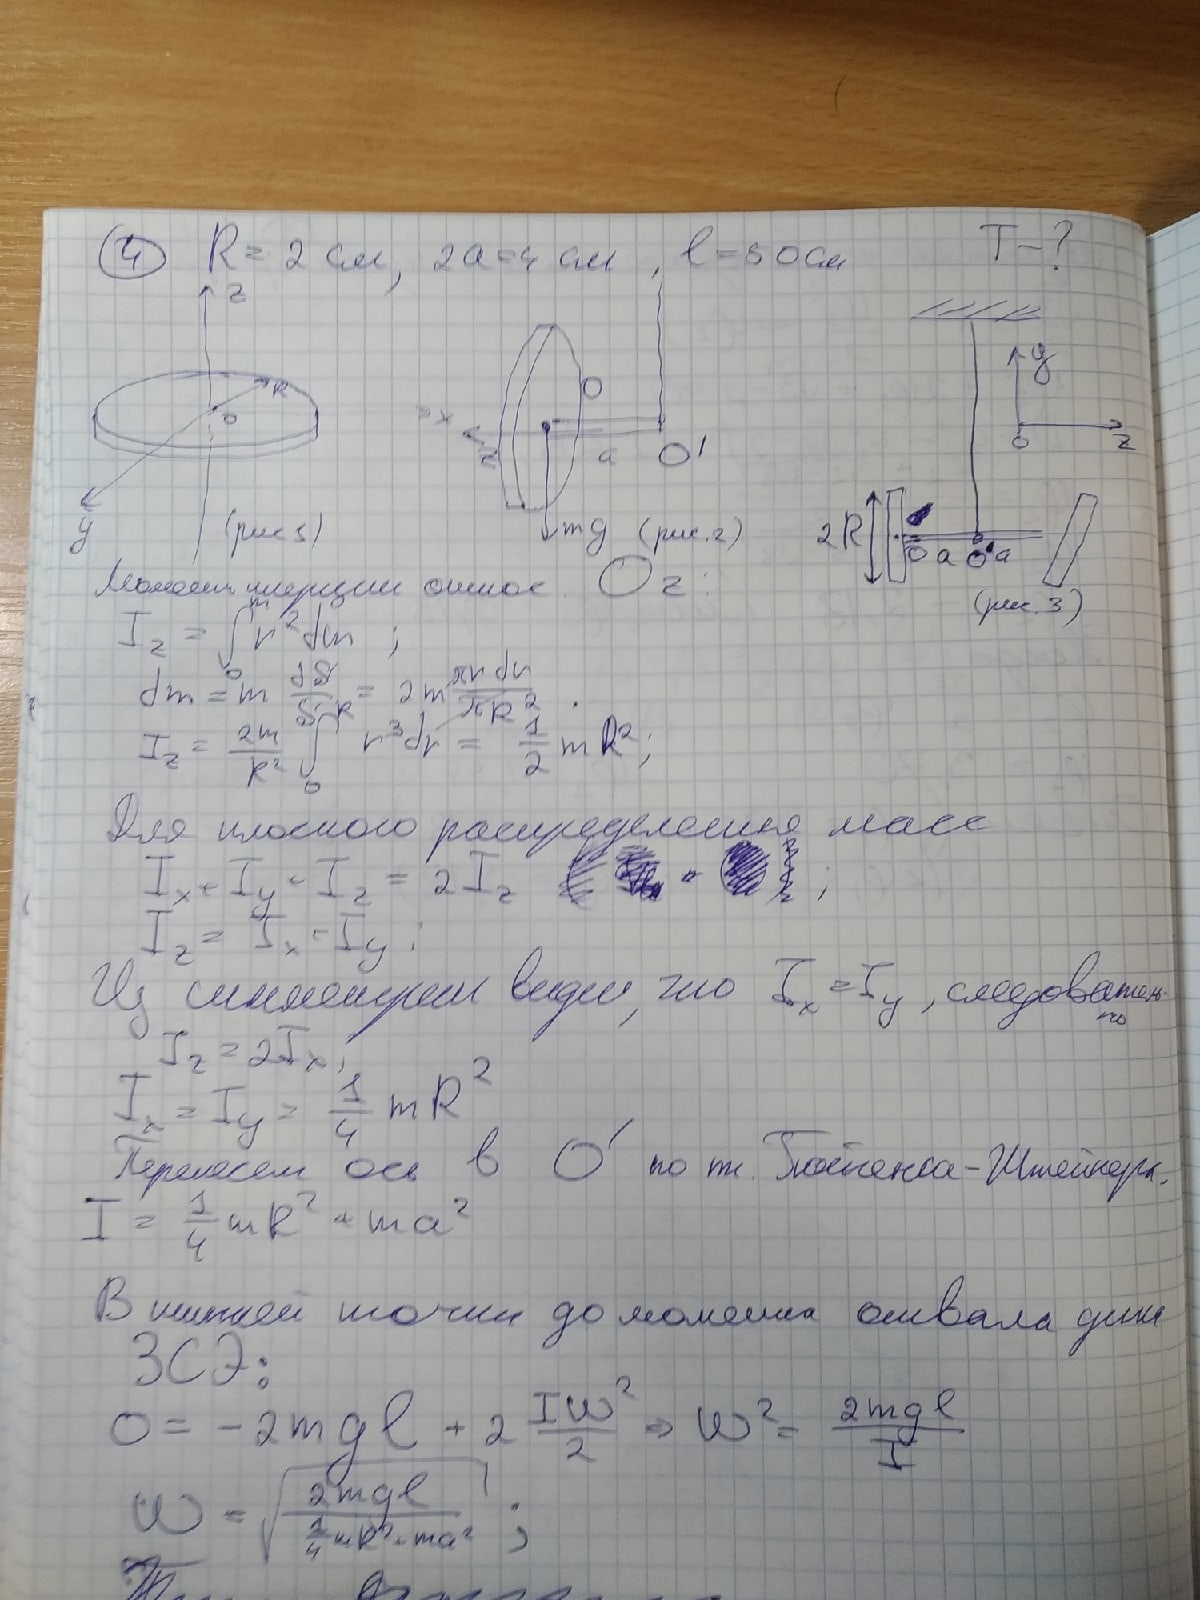 4 R = 2 см, 2a = 4 см, l = 50 см T - ?
z
R
O
y
(рис 1)
x
z
O
a
O'
mg (рис. 2)
y
O
z
2R
O a O' a
(рис. 3)
Момент инерции относ. Oz:
I_z = ∫_0^m r² dm ;
dm = m dS/S = 2m πr dr/πR² .
I_z = 2m/R² ∫_0^R r³ dr = 1/2 mR²;
Для плоского распределения масс
I_x + I_y + I_z = 2I_z ;
I_z = I_x + I_y ;
Из симметрии видно, что I_x = I_y, следовательно
I_z = 2I_x;
I_x = I_y = 1/4 mR²
Перенесем ось в O' по т. Гюйгенса-Штейнера.
I = 1/4 mR² + ma²
В нижней точки до момента отвала
ЗСЭ:
0 = -2mgl + 2 Iω²/2 ⇒ ω² = 2mgl/I
ω = √(2mgl/(1/4 mR² + ma²)) ;